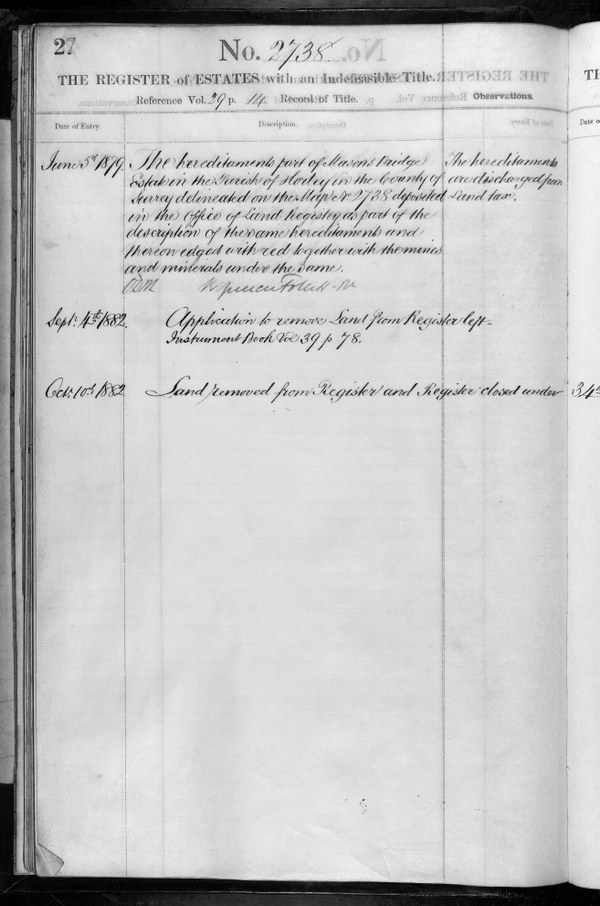 27
No. 2738.
THE REGISTER of ESTATES with an Indefeasible Title.
Reference Vol. 29 p. 14. Record of Title. Observations.
Date of Entry. Description.
June 3rd 1879. The hereditaments part of Masons Bridge
Estate in the Parish of Horley in the County of
Surrey delineated on the Map No. 2738 deposited
in the office of Land Registry as part of the
description of the same hereditaments and
thereon edged with red together with the mines
and minerals under the same.
The hereditaments
are discharged from
Land tax.
Septr. 4th 1882. Application to remove Land from Register left–
Instrument Book Vol 39 p 78.
Octr. 10th 1882 Land removed from Register and Register closed under 34
TH
Date o